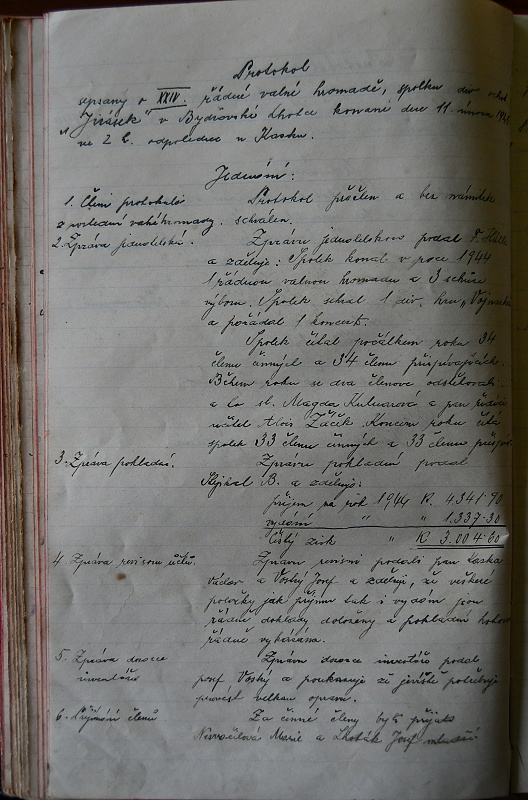 Protokol
sepsaný o XXIV. řádné valné hromadě, spolku div. ochot.
"Jirásek" v Bydžovské Lhotce konané dne 11. února
ve 2 h. odpoledne u Kasků.
Jednání:
1. Čtení protokolu Protokol přečten a bez námitek
z poslední valné hromady. schválen.
2. Zpráva jednatelská. Zprávu jednatelskou podal F.
a zděluje: Spolek konal v roce 1944
1 řádnou valnou hromadu a 3 schůze
výboru. Spolek sehrál 1 div. hru „
a pořádal 1 koncert.
Spolek čítal počátkem roku 34
členů činných a 34 členů přispívajících.
Během roku se dva členové odstěhovali
a to sl. Magda a pan řídící
učitel Alois Žáček. Koncem roku čítá
spolek 33 členů činných a 33 členů přispív.
3. Zpráva pokladní. Zprávu pokladní podal
B. a zděluje:
příjem na rok 1944 K. 4.341·90
vydání " " 1.337·30
Čistý zisk " K 3.004·60
4. Zpráva revisorů účtů. Zprávu revisní podali pan Kaska
Václav a Voský Josef a zdělují, že veškeré
položky jak příjmů tak i vydání jsou
řádně doklady doloženy a pokladní hotovost
řádně vykázána.
5. Zpráva dozorce Zprávu dozorce inventáře podal
inventáře Josef Voský a poukazuje že jeviště potřebuje
provést velkou opravu.
6. Přijímání členů Za činné členy byli přijati
Marie a Lhoták Josef mladší